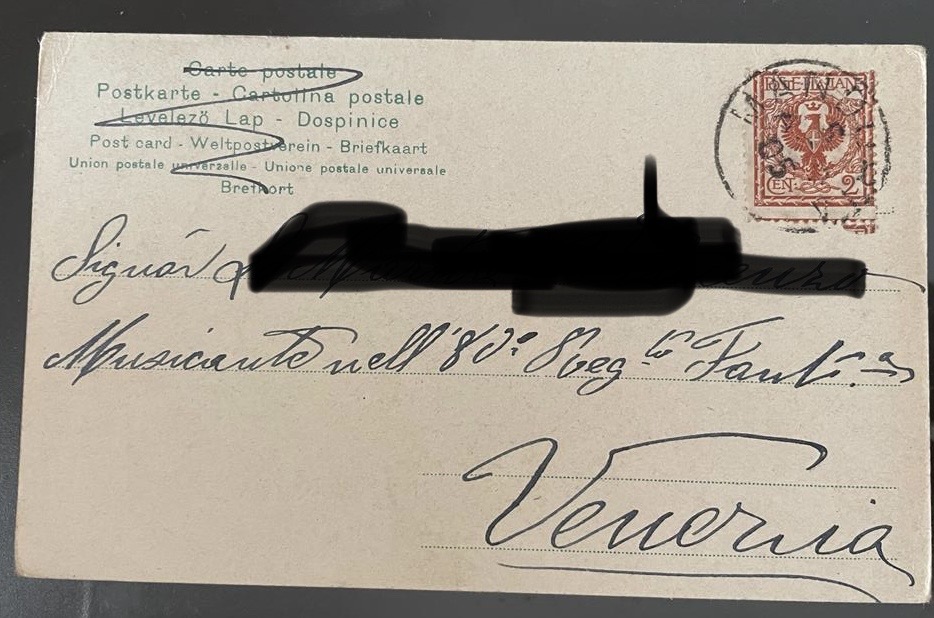 Carte postale
Postkarte - Cartolina postale
Levelező Lap - Dospinice
Post card - Weltpostverein - Briefkaart
Union postale universelle - Unione postale universale
Brefkort
POSTE ITALIANE
CEN. 2
05
Signor
Musicante nell' 8 Reg.to Fant.a
Venezia